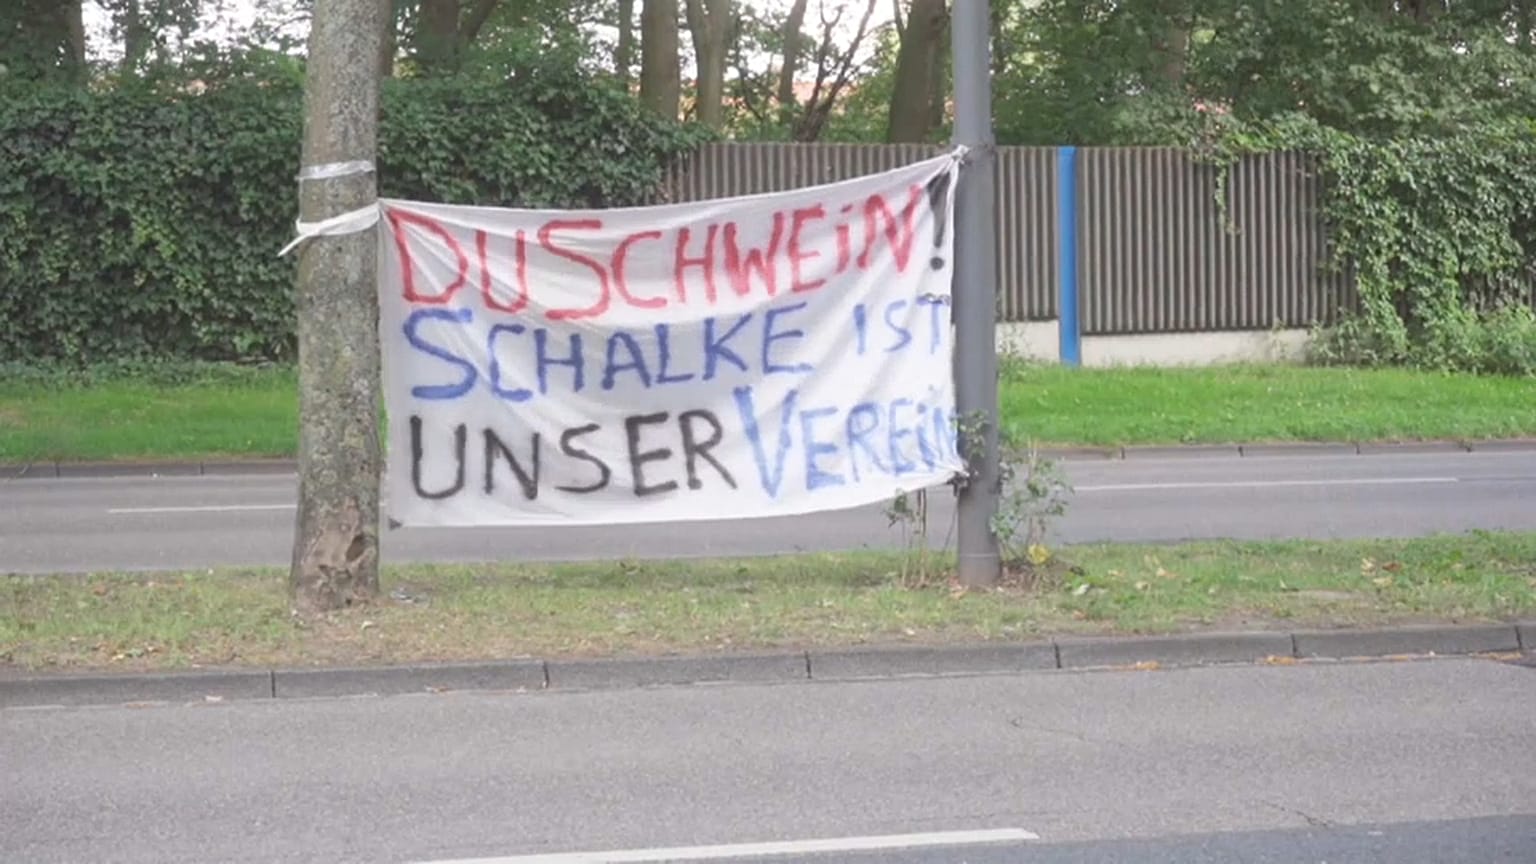 DUSCHWEiN!
SCHALKE IST
UNSER VEREiN